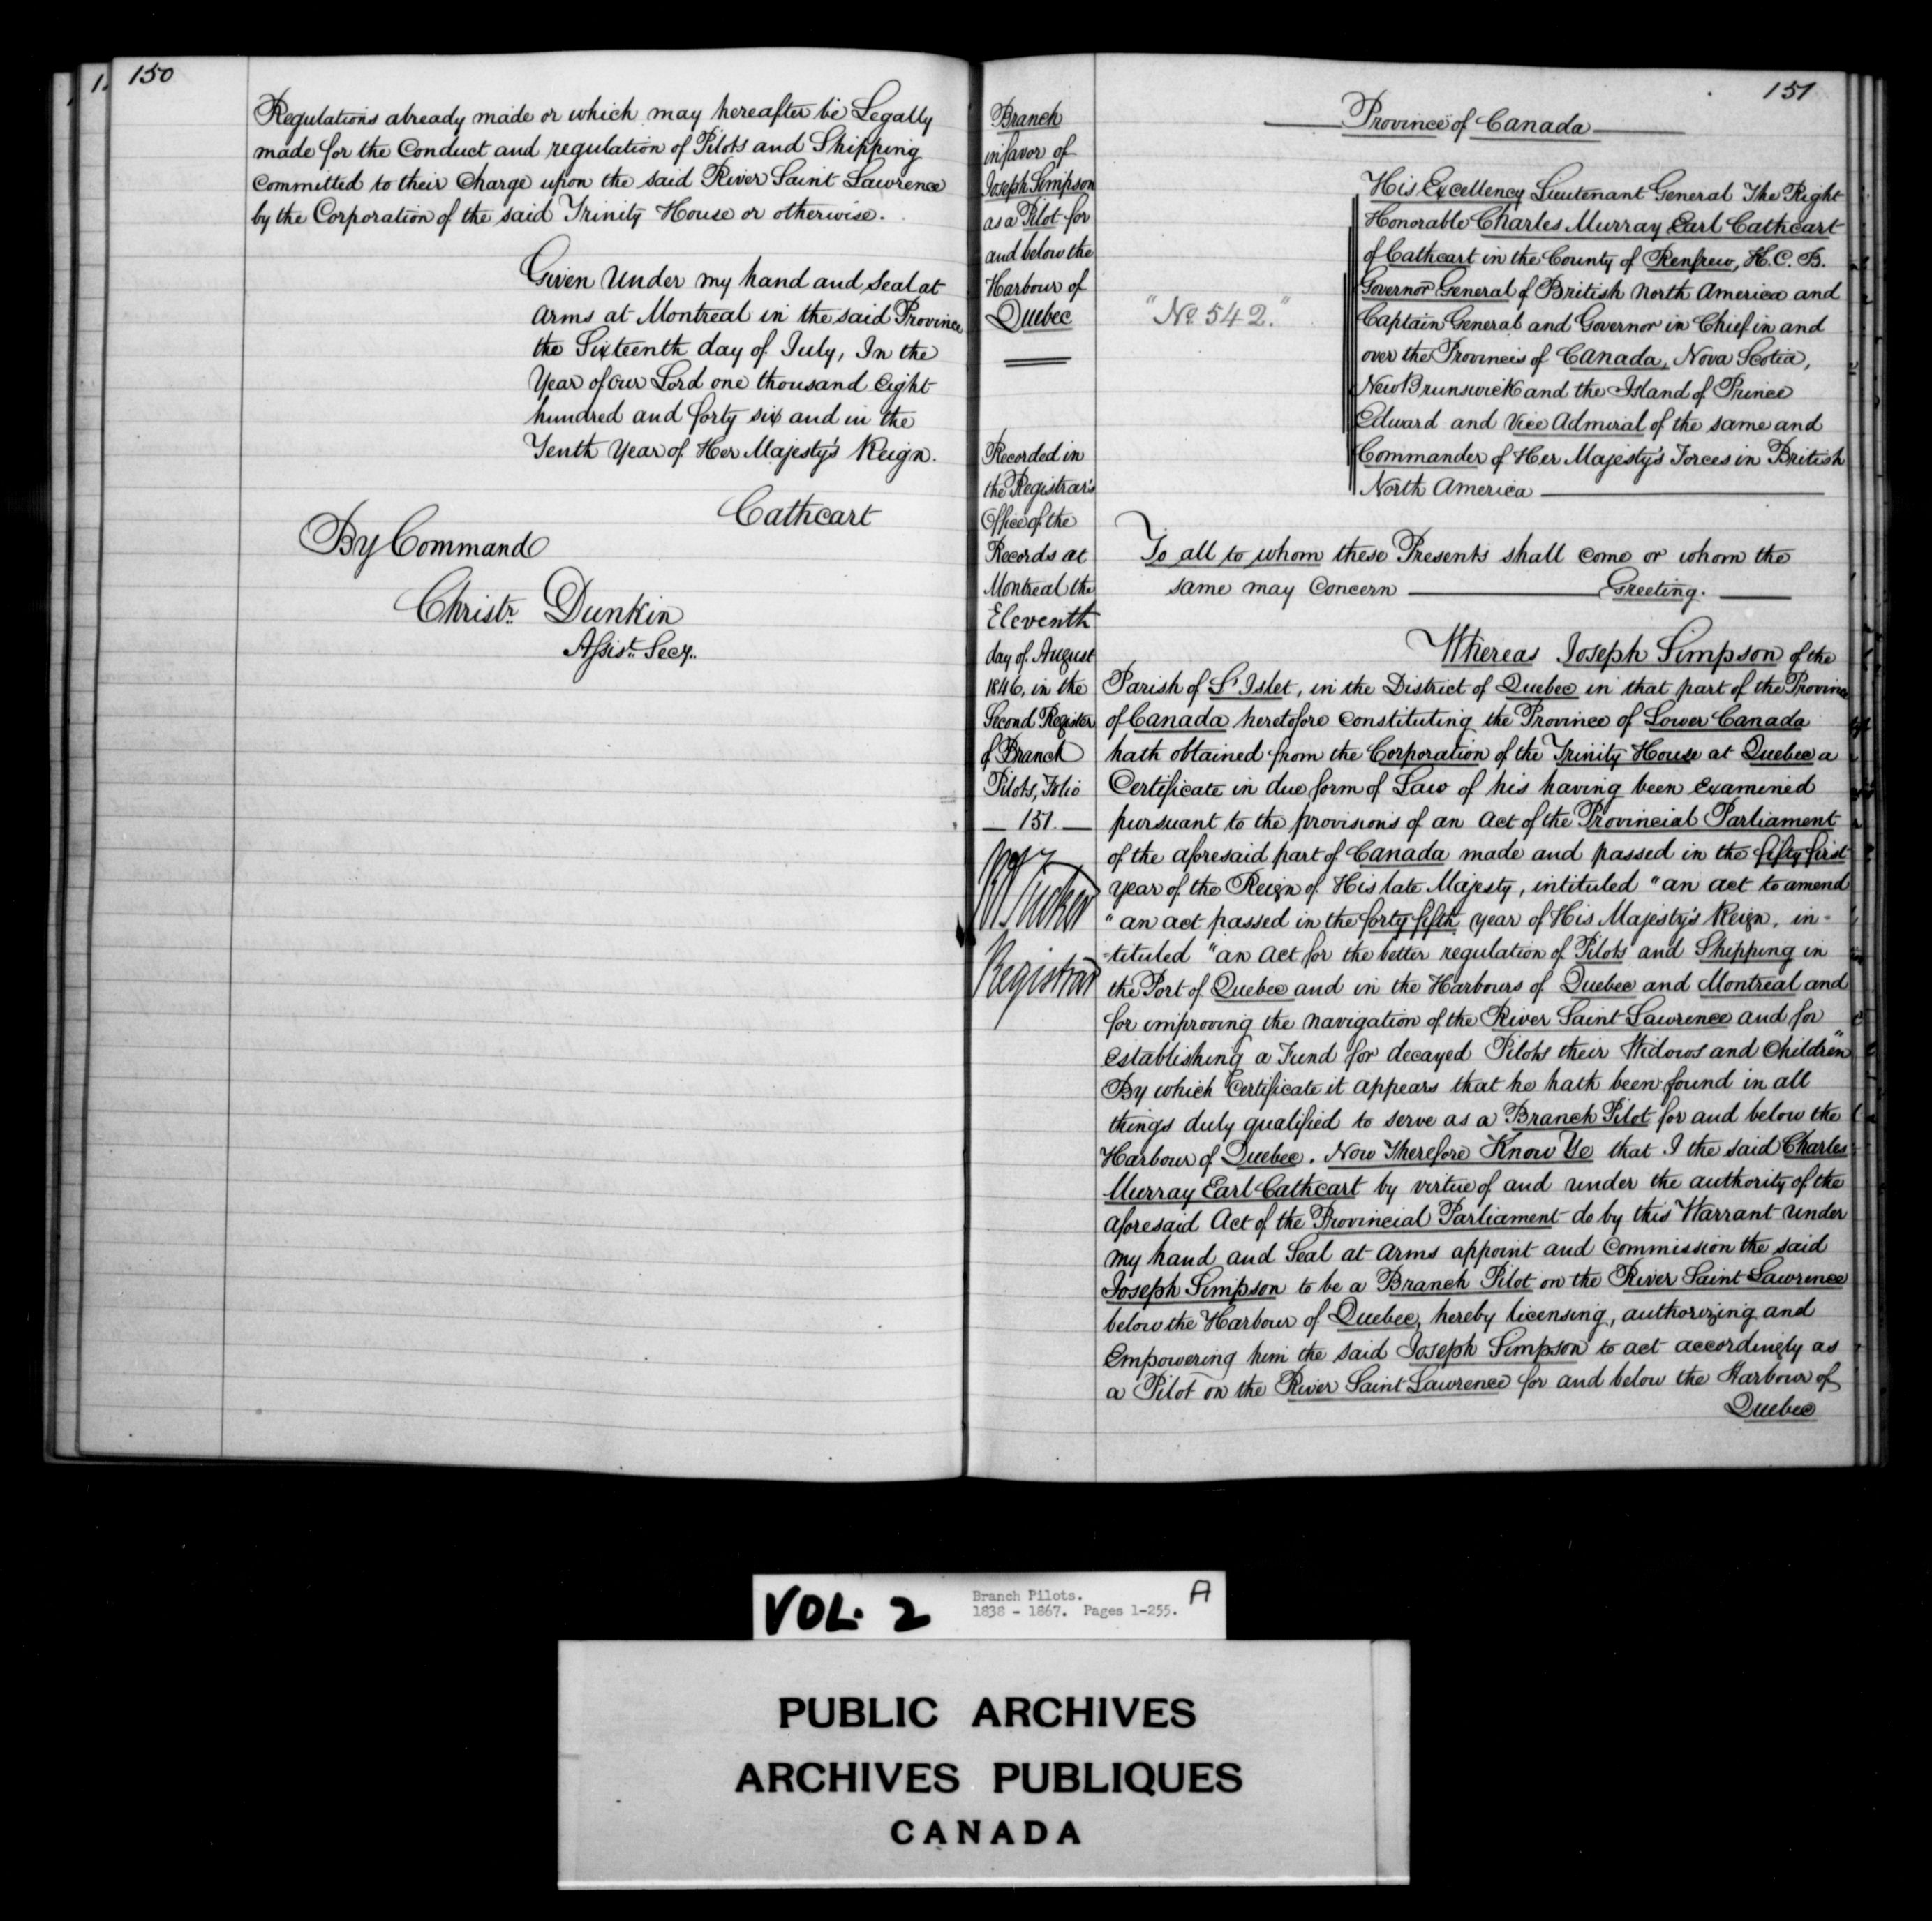 150
Regulations already made or which may hereafter be Legally
made for the Conduct and regulation of Pilots and Shipping
committed to their Charge upon the said River Saint Lawrence
by the Corporation of the said Trinity House or otherwise.
Given Under my hand and Seal at
Arms at Montreal in the said Province
the Sixteenth day of July, In the
Year of our Lord one thousand Eight
hundred and forty six and in the
Tenth Year of Her Majesty's Reign.
Cathcart
By Command
Christr. Dunkin
Assist. Secy.
151
Branch
in favor of
Joseph Simpson
as a Pilot for
and below the
Harbour of
Quebec
Recorded in
the Registrar's
Office of the
Records at
Montreal the
Eleventh
day of August
1846, in the
Second Register
of Branch
Pilots, Folio
— 151. —
Tucker
Registrar
"No. 542."
Province of Canada
His Excellency Lieutenant General The Right
Honorable Charles Murray Earl Cathcart
of Cathcart in the County of Renfrew, K.C.B.
Governor General of British North America and
Captain General and Governor in Chief in and
over the Provinces of Canada, Nova Scotia,
New Brunswick and the Island of Prince
Edward and Vice Admiral of the same and
Commander of Her Majesty's Forces in British
North America
To all to whom these Presents shall come or whom the
same may Concern — Greeting. —
Whereas Joseph Simpson of the
Parish of St Islet, in the District of Quebec in that part of the Province
of Canada heretofore constituting the Province of Lower Canada
hath obtained from the Corporation of the Trinity House at Quebec a
Certificate in due form of Law of his having been Examined
pursuant to the provisions of an Act of the Provincial Parliament
of the aforesaid part of Canada made and passed in the fifty first
year of the Reign of His late Majesty, intituled "an act to amend
"an act passed in the forty fifth year of His Majesty's Reign, in=
=tituled "an Act for the better regulation of Pilots and Shipping in
the Port of Quebec and in the Harbours of Quebec and Montreal and
for improving the navigation of the River Saint Lawrence and for
establishing a Fund for decayed Pilots their Widows and Children"
By which Certificate it appears that he hath been found in all
things duly qualified to serve as a Branch Pilot for and below the
Harbour of Quebec. Now Therefore Know Ye that I the said Charles
Murray Earl Cathcart by virtue of and under the authority of the
aforesaid Act of the Provincial Parliament do by this Warrant under
my hand and Seal at Arms appoint and Commission the said
Joseph Simpson to be a Branch Pilot on the River Saint Lawrence
below the Harbour of Quebec, hereby licensing, authorizing and
Empowering him the said Joseph Simpson to act accordingly as
a Pilot on the River Saint Lawrence for and below the Harbour of
Quebec
VOL. 2
Branch Pilots.
1838 - 1867. Pages 1-255.
A
PUBLIC ARCHIVES
ARCHIVES PUBLIQUES
CANADA